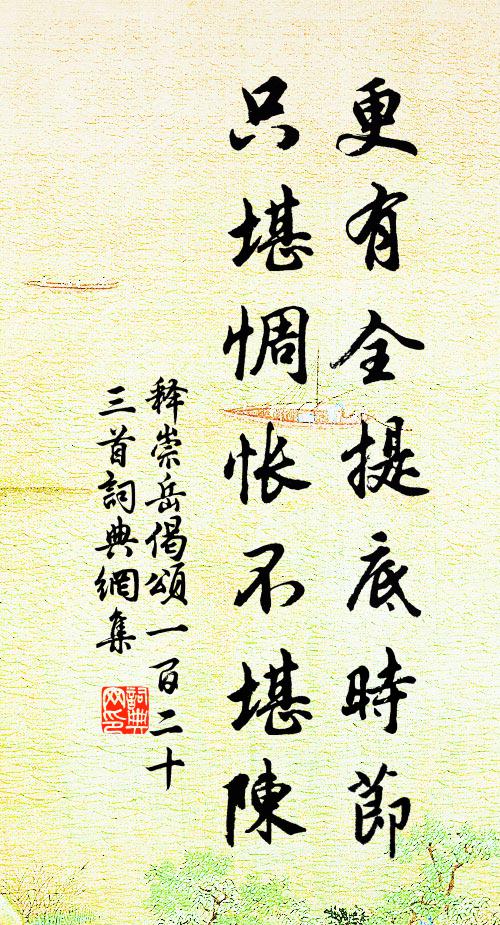 更有全提底時節
只堪惆悵不堪陳
釋崇岳偈頌一百二十
三首詞典網集
詞典网印